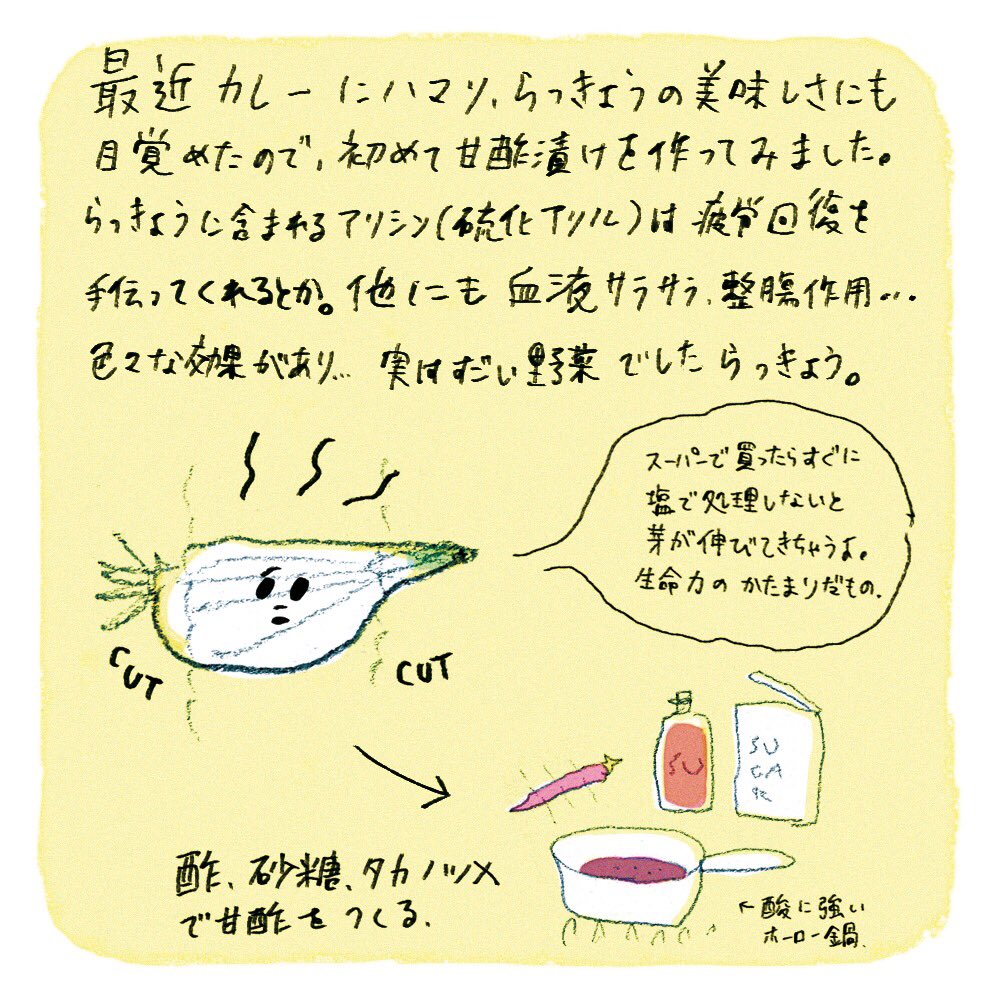 最近カレーにハマり、らっきょうの美味しさにも
目覚めたので、初めて甘酢漬けを作ってみました。
らっきょうに含まれるアリシン(硫化アリル)は疲労回復を
手伝ってくれるとか。他にも血液サラサラ、整腸作用...
色々な効果があり... 実はすごい野菜でしたらっきょう。
スーパーで買ったらすぐに
塩で処理しないと
芽が伸びてきちゃうよ。
生命力のかたまりだもの.
CUT
CUT
SU
SU
GA
R
酢、砂糖、タカノツメ
で甘酢をつくる.
←酸に強い
ホーロー鍋.